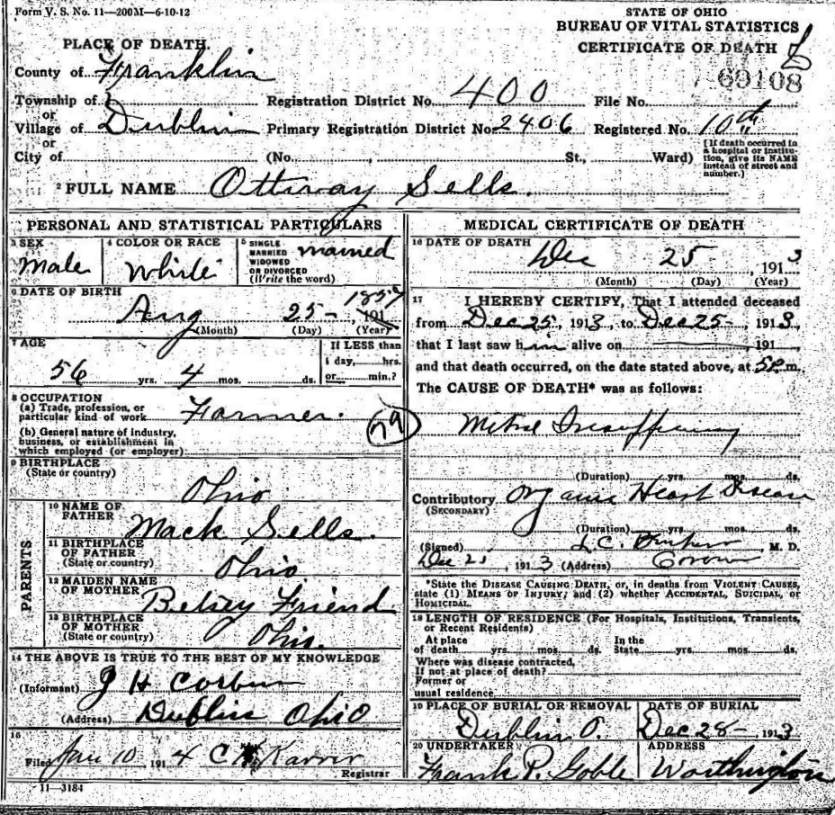 Form V. S. No. 11—200M—6-10-12
STATE OF OHIO
BUREAU OF VITAL STATISTICS
CERTIFICATE OF DEATH
69108
PLACE OF DEATH
County of Franklin
Township of
or
Village of Dublin
or
City of
Registration District No. 400 File No.
Primary Registration District No. 2406 Registered No. 10th
(No. , St., Ward)
[If death occurred in a hospital or institution, give its NAME instead of street and number.]
2 FULL NAME Ottiway Sells.
PERSONAL AND STATISTICAL PARTICULARS
3 SEX
Male
4 COLOR OR RACE
White
5 SINGLE MARRIED WIDOWED OR DIVORCED (Write the word)
married
6 DATE OF BIRTH
Aug 25- 1857 191
(Month) (Day) (Year)
7 AGE
56 yrs. 4 mos. ds.
If LESS than 1 day, hrs. or min.?
8 OCCUPATION
(a) Trade, profession, or particular kind of work Farmer.
(b) General nature of industry, business, or establishment in which employed (or employer)
79
9 BIRTHPLACE
(State or country)
Ohio
PARENTS
10 NAME OF FATHER
Mack Sells.
11 BIRTHPLACE OF FATHER
(State or country)
Ohio
12 MAIDEN NAME OF MOTHER
Betsey Friend
13 BIRTHPLACE OF MOTHER
(State or country)
Ohio.
14 THE ABOVE IS TRUE TO THE BEST OF MY KNOWLEDGE
(Informant) J H Corbin
(Address) Dublin Ohio
15
Filed Jan 10 1914 C Karrer
Registrar
11—3184
MEDICAL CERTIFICATE OF DEATH
16 DATE OF DEATH
Dec 25 1913
(Month) (Day) (Year)
17 I HEREBY CERTIFY, That I attended deceased
from Dec 25, 1913, to Dec 25-, 1913,
that I last saw him alive on 191
and that death occurred, on the date stated above, at 5P.m.
The CAUSE OF DEATH* was as follows:
Mitral Insufficiency
(Duration) yrs. mos. ds.
Contributory Organic Heart Disease
(SECONDARY)
(Duration) yrs. mos. ds.
(Signed) L.C. M. D.
Dec 1913 (Address)
*State the DISEASE CAUSING DEATH, or, in deaths from VIOLENT CAUSES, state (1) MEANS OF INJURY; and (2) whether ACCIDENTAL, SUICIDAL, or HOMICIDAL.
18 LENGTH OF RESIDENCE (For Hospitals, Institutions, Transients, or Recent Residents)
At place of death yrs. mos. ds. In the State yrs. mos. ds.
Where was disease contracted, If not at place of death?
Former or usual residence
19 PLACE OF BURIAL OR REMOVAL
Dublin O.
DATE OF BURIAL
Dec 28- 1913
20 UNDERTAKER
Frank P. Goble
ADDRESS
Worthington